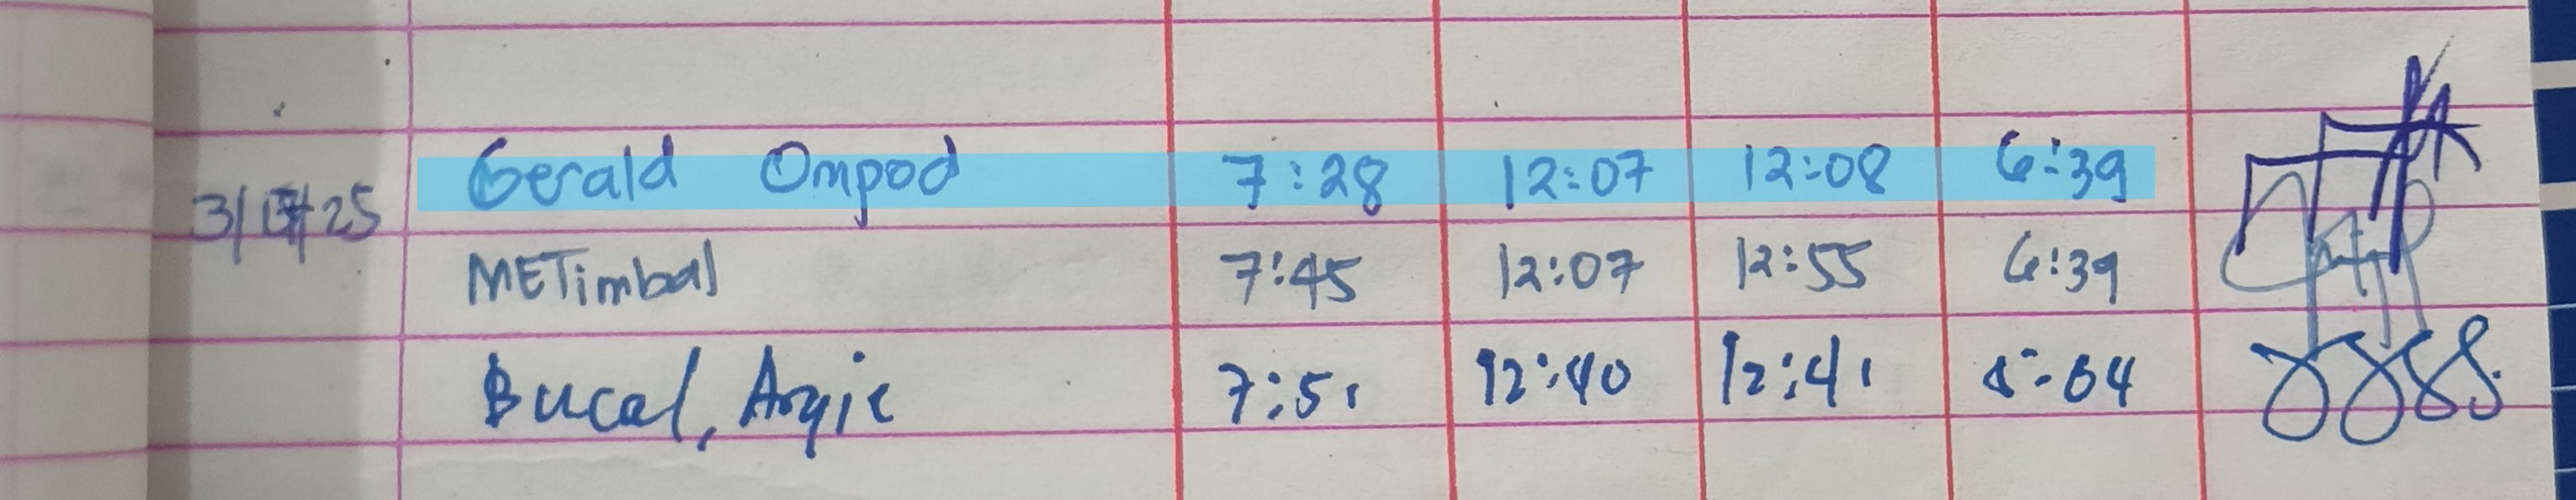 Gerald Ompod 7:28 12:07 12:08 6:39
3/17/25
METimbal 7:45 12:07 12:55 6:39
Bucal, Argie 7:51 12:40 12:41